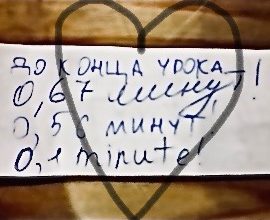 до конца урока
0,67 минут!
0,56 минут!
0,1 minute!